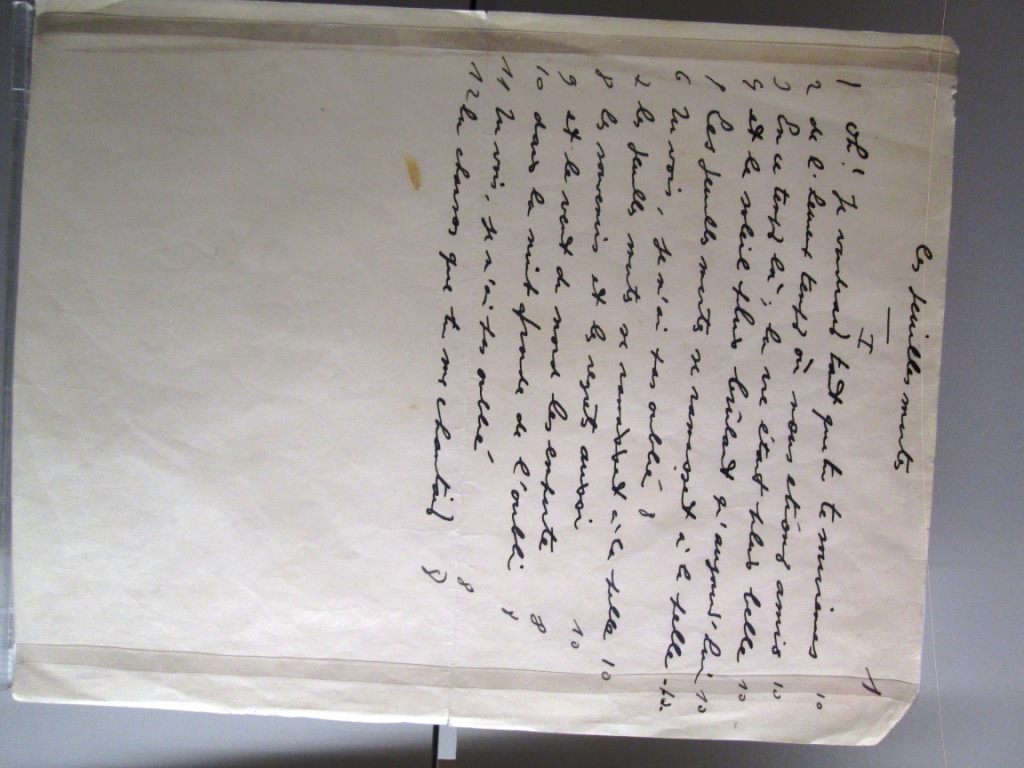 1
Les feuilles mortes
I
1 Oh! Je voudrais tant que tu te souviennes 10
2 de l. heureux temps où nous étions amis 10
3 En ce temps là, la vie était plus belle 10
4 et le soleil plus brûlant qu'aujourd'hui 10
5 Les feuilles mortes se ramassent à la pelle
6 Tu vois, je n'ai pas oublié 8
7 les feuilles mortes se ramassent à la pelle 10
8 les souvenirs et les regrets aussi 10
9 et le vent du nord les emporte 8
10 dans la nuit froide de l'oubli
11 Tu vois, je n'ai pas oublié 8
12 la chanson que tu me chantais 8